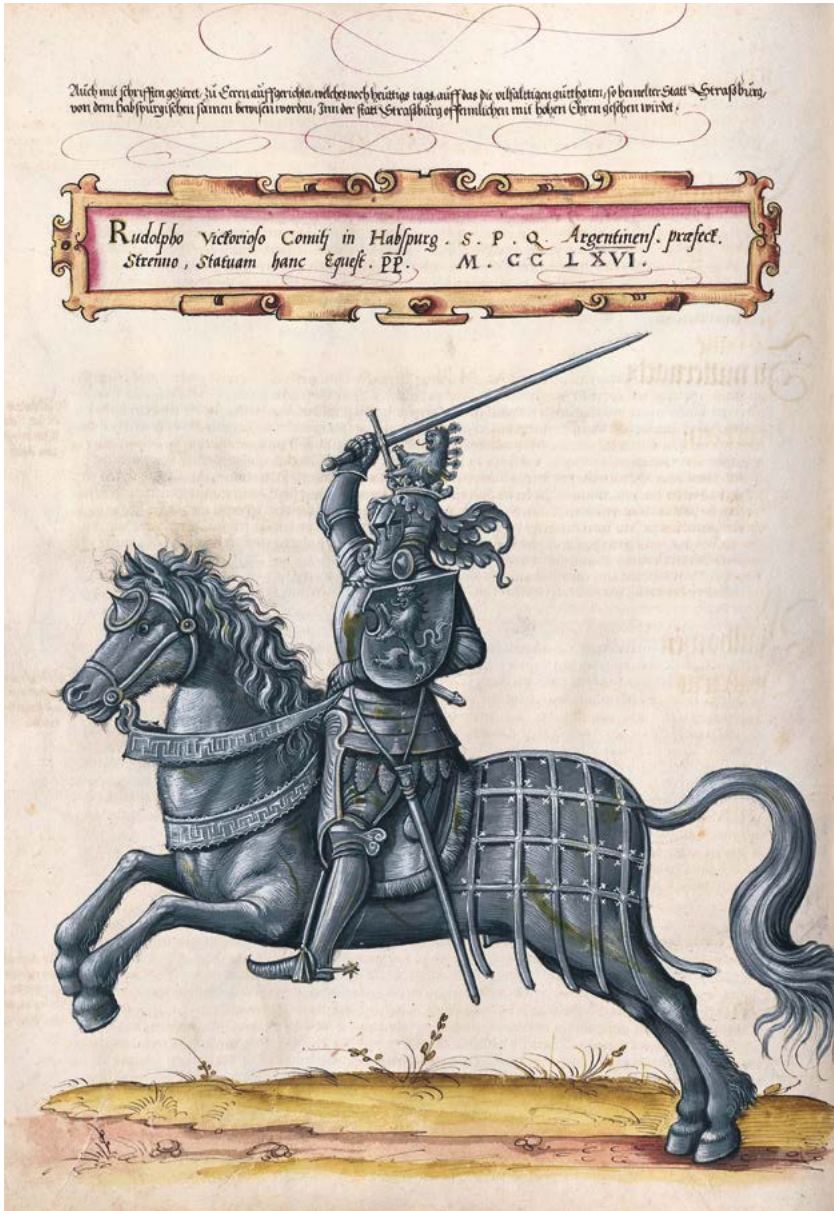 Auch mit schrifften gezieret, zu Eeren auffgerichtet, welches noch heuttigs tags, auff das die vilfälttigen gutthaten, so bemelter Statt Straßburg,
von dem habspurgischen samen bewisen worden, Inn der statt Straßburg offennlichen mit hohen Ehren gesehen wirdet.
Rudolpho Victorioso Comitj in Habspurg. S. P. Q. Argentinens. præfect.
Strenuo, Statuam hanc Equest. P̄P̄. M. CC LXVI.